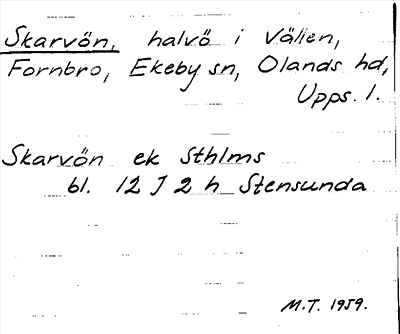 Skarvön, halvö i Vällen,
Fornbro, Ekeby sn, Olands hd,
Upps. l.
Skarvön ek Sthlms
bl. 12 J 2 h Stensunda
M.T. 1959.